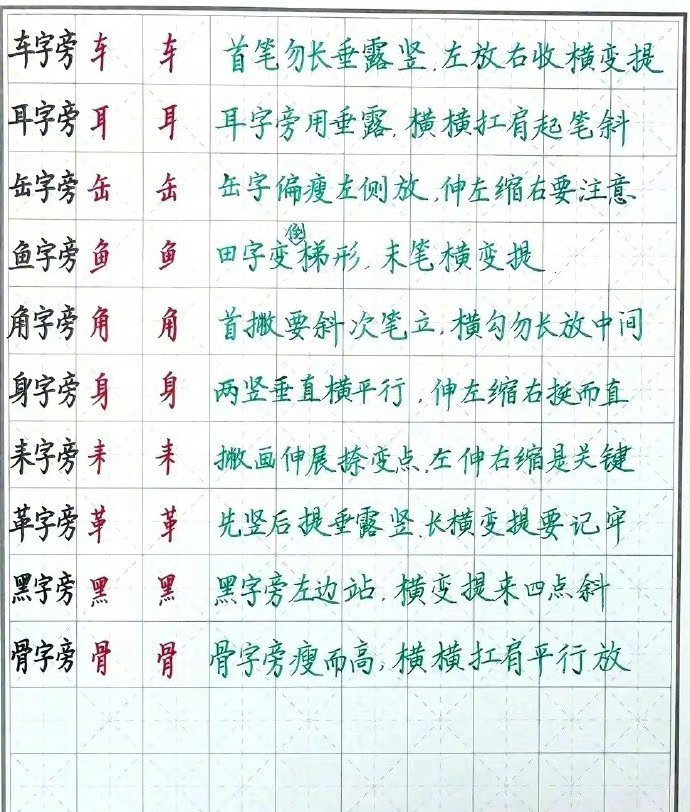 车字旁 车 车 首笔勿长垂露竖.左放右收横变提
耳字旁 耳 耳 耳字旁用垂露.横横扛肩起笔斜
缶字旁 缶 缶 缶字偏瘦左侧放.伸左缩右要注意
鱼字旁 鱼 鱼 田字变倒梯形.末笔横变提
角字旁 角 角 首撇要斜次笔立.横勾勿长放中间
身字旁 身 身 两竖垂直横平行.伸左缩右挺而直
耒字旁 耒 耒 撇画伸展捺变点.左伸右缩是关键
革字旁 革 革 先竖后提垂露竖.长横变提要记牢
黑字旁 黑 黑 黑字旁左边站.横变提来四点斜
骨字旁 骨 骨 骨字旁瘦而高,横横扛肩平行放